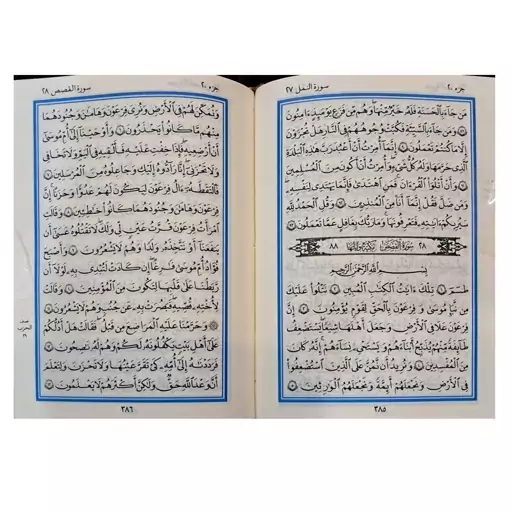 جزء ٢٠ سورة النمل ٢٧
مَن جَآءَ بِٱلْحَسَنَةِ فَلَهُۥ خَيْرٌ مِّنْهَا وَهُم مِّن فَزَعٍ يَوْمَئِذٍ ءَامِنُونَ
وَمَن جَآءَ بِٱلسَّيِّئَةِ فَكُبَّتْ وُجُوهُهُمْ فِي ٱلنَّارِ هَلْ تُجْزَوْنَ
إِلَّا مَا كُنتُمْ تَعْمَلُونَ إِنَّمَآ أُمِرْتُ أَنْ أَعْبُدَ رَبَّ هَٰذِهِ ٱلْبَلْدَةِ
ٱلَّذِي حَرَّمَهَا وَلَهُۥ كُلُّ شَيْءٍ وَأُمِرْتُ أَنْ أَكُونَ مِنَ ٱلْمُسْلِمِينَ
وَأَنْ أَتْلُوَا۟ ٱلْقُرْءَانَ فَمَنِ ٱهْتَدَىٰ فَإِنَّمَا يَهْتَدِي لِنَفْسِهِۦ
وَمَن ضَلَّ فَقُلْ إِنَّمَآ أَنَا۠ مِنَ ٱلْمُنذِرِينَ وَقُلِ ٱلْحَمْدُ لِلَّهِ
سَيُرِيكُمْ ءَايَٰتِهِۦ فَتَعْرِفُونَهَا وَمَا رَبُّكَ بِغَٰفِلٍ عَمَّا تَعْمَلُونَ
٢٨ سُورَةُ القَصَصِ مَكِّيَّة وَآيَاتُهَا ٨٨
بِسْمِ ٱللَّهِ ٱلرَّحْمَٰنِ ٱلرَّحِيمِ
طسٓمٓ تِلْكَ ءَايَٰتُ ٱلْكِتَٰبِ ٱلْمُبِينِ نَتْلُوا۟ عَلَيْكَ
مِن نَّبَإِ مُوسَىٰ وَفِرْعَوْنَ بِٱلْحَقِّ لِقَوْمٍ يُؤْمِنُونَ إِنَّ
فِرْعَوْنَ عَلَا فِي ٱلْأَرْضِ وَجَعَلَ أَهْلَهَا شِيَعًا يَسْتَضْعِفُ
طَآئِفَةً مِّنْهُمْ يُذَبِّحُ أَبْنَآءَهُمْ وَيَسْتَحْيِۦ نِسَآءَهُمْ إِنَّهُۥ كَانَ
مِنَ ٱلْمُفْسِدِينَ وَنُرِيدُ أَن نَّمُنَّ عَلَى ٱلَّذِينَ ٱسْتُضْعِفُوا۟
فِي ٱلْأَرْضِ وَنَجْعَلَهُمْ أَئِمَّةً وَنَجْعَلَهُمُ ٱلْوَٰرِثِينَ
٣٨٥
جزء ٢٠ سورة القصص ٢٨
وَنُمَكِّنَ لَهُمْ فِي ٱلْأَرْضِ وَنُرِيَ فِرْعَوْنَ وَهَٰمَٰنَ وَجُنُودَهُمَا
مِنْهُم مَّا كَانُوا۟ يَحْذَرُونَ وَأَوْحَيْنَآ إِلَىٰٓ أُمِّ مُوسَىٰٓ
أَنْ أَرْضِعِيهِ فَإِذَا خِفْتِ عَلَيْهِ فَأَلْقِيهِ فِي ٱلْيَمِّ وَلَا تَخَافِي
وَلَا تَحْزَنِيٓ إِنَّا رَآدُّوهُ إِلَيْكِ وَجَاعِلُوهُ مِنَ ٱلْمُرْسَلِينَ
فَٱلْتَقَطَهُۥٓ ءَالُ فِرْعَوْنَ لِيَكُونَ لَهُمْ عَدُوًّا وَحَزَنًا إِنَّ
فِرْعَوْنَ وَهَٰمَٰنَ وَجُنُودَهُمَا كَانُوا۟ خَٰطِـِٔينَ وَقَالَتِ
ٱمْرَأَتُ فِرْعَوْنَ قُرَّتُ عَيْنٍ لِّي وَلَكَ لَا تَقْتُلُوهُ عَسَىٰٓ أَن
يَنفَعَنَآ أَوْ نَتَّخِذَهُۥ وَلَدًا وَهُمْ لَا يَشْعُرُونَ وَأَصْبَحَ
فُؤَادُ أُمِّ مُوسَىٰ فَٰرِغًا إِن كَادَتْ لَتُبْدِي بِهِۦ لَوْلَآ أَن
رَّبَطْنَا عَلَىٰ قَلْبِهَا لِتَكُونَ مِنَ ٱلْمُؤْمِنِينَ وَقَالَتْ
لِأُخْتِهِۦ قُصِّيهِ فَبَصُرَتْ بِهِۦ عَن جُنُبٍ وَهُمْ لَا يَشْعُرُونَ
وَحَرَّمْنَا عَلَيْهِ ٱلْمَرَاضِعَ مِن قَبْلُ فَقَالَتْ هَلْ أَدُلُّكُمْ
عَلَىٰٓ أَهْلِ بَيْتٍ يَكْفُلُونَهُۥ لَكُمْ وَهُمْ لَهُۥ نَٰصِحُونَ
فَرَدَدْنَٰهُ إِلَىٰٓ أُمِّهِۦ كَيْ تَقَرَّ عَيْنُهَا وَلَا تَحْزَنَ وَلِتَعْلَمَ
أَنَّ وَعْدَ ٱللَّهِ حَقٌّ وَلَٰكِنَّ أَكْثَرَهُمْ لَا يَعْلَمُونَ
نصف
الحزب
٣٩
٣٨٦